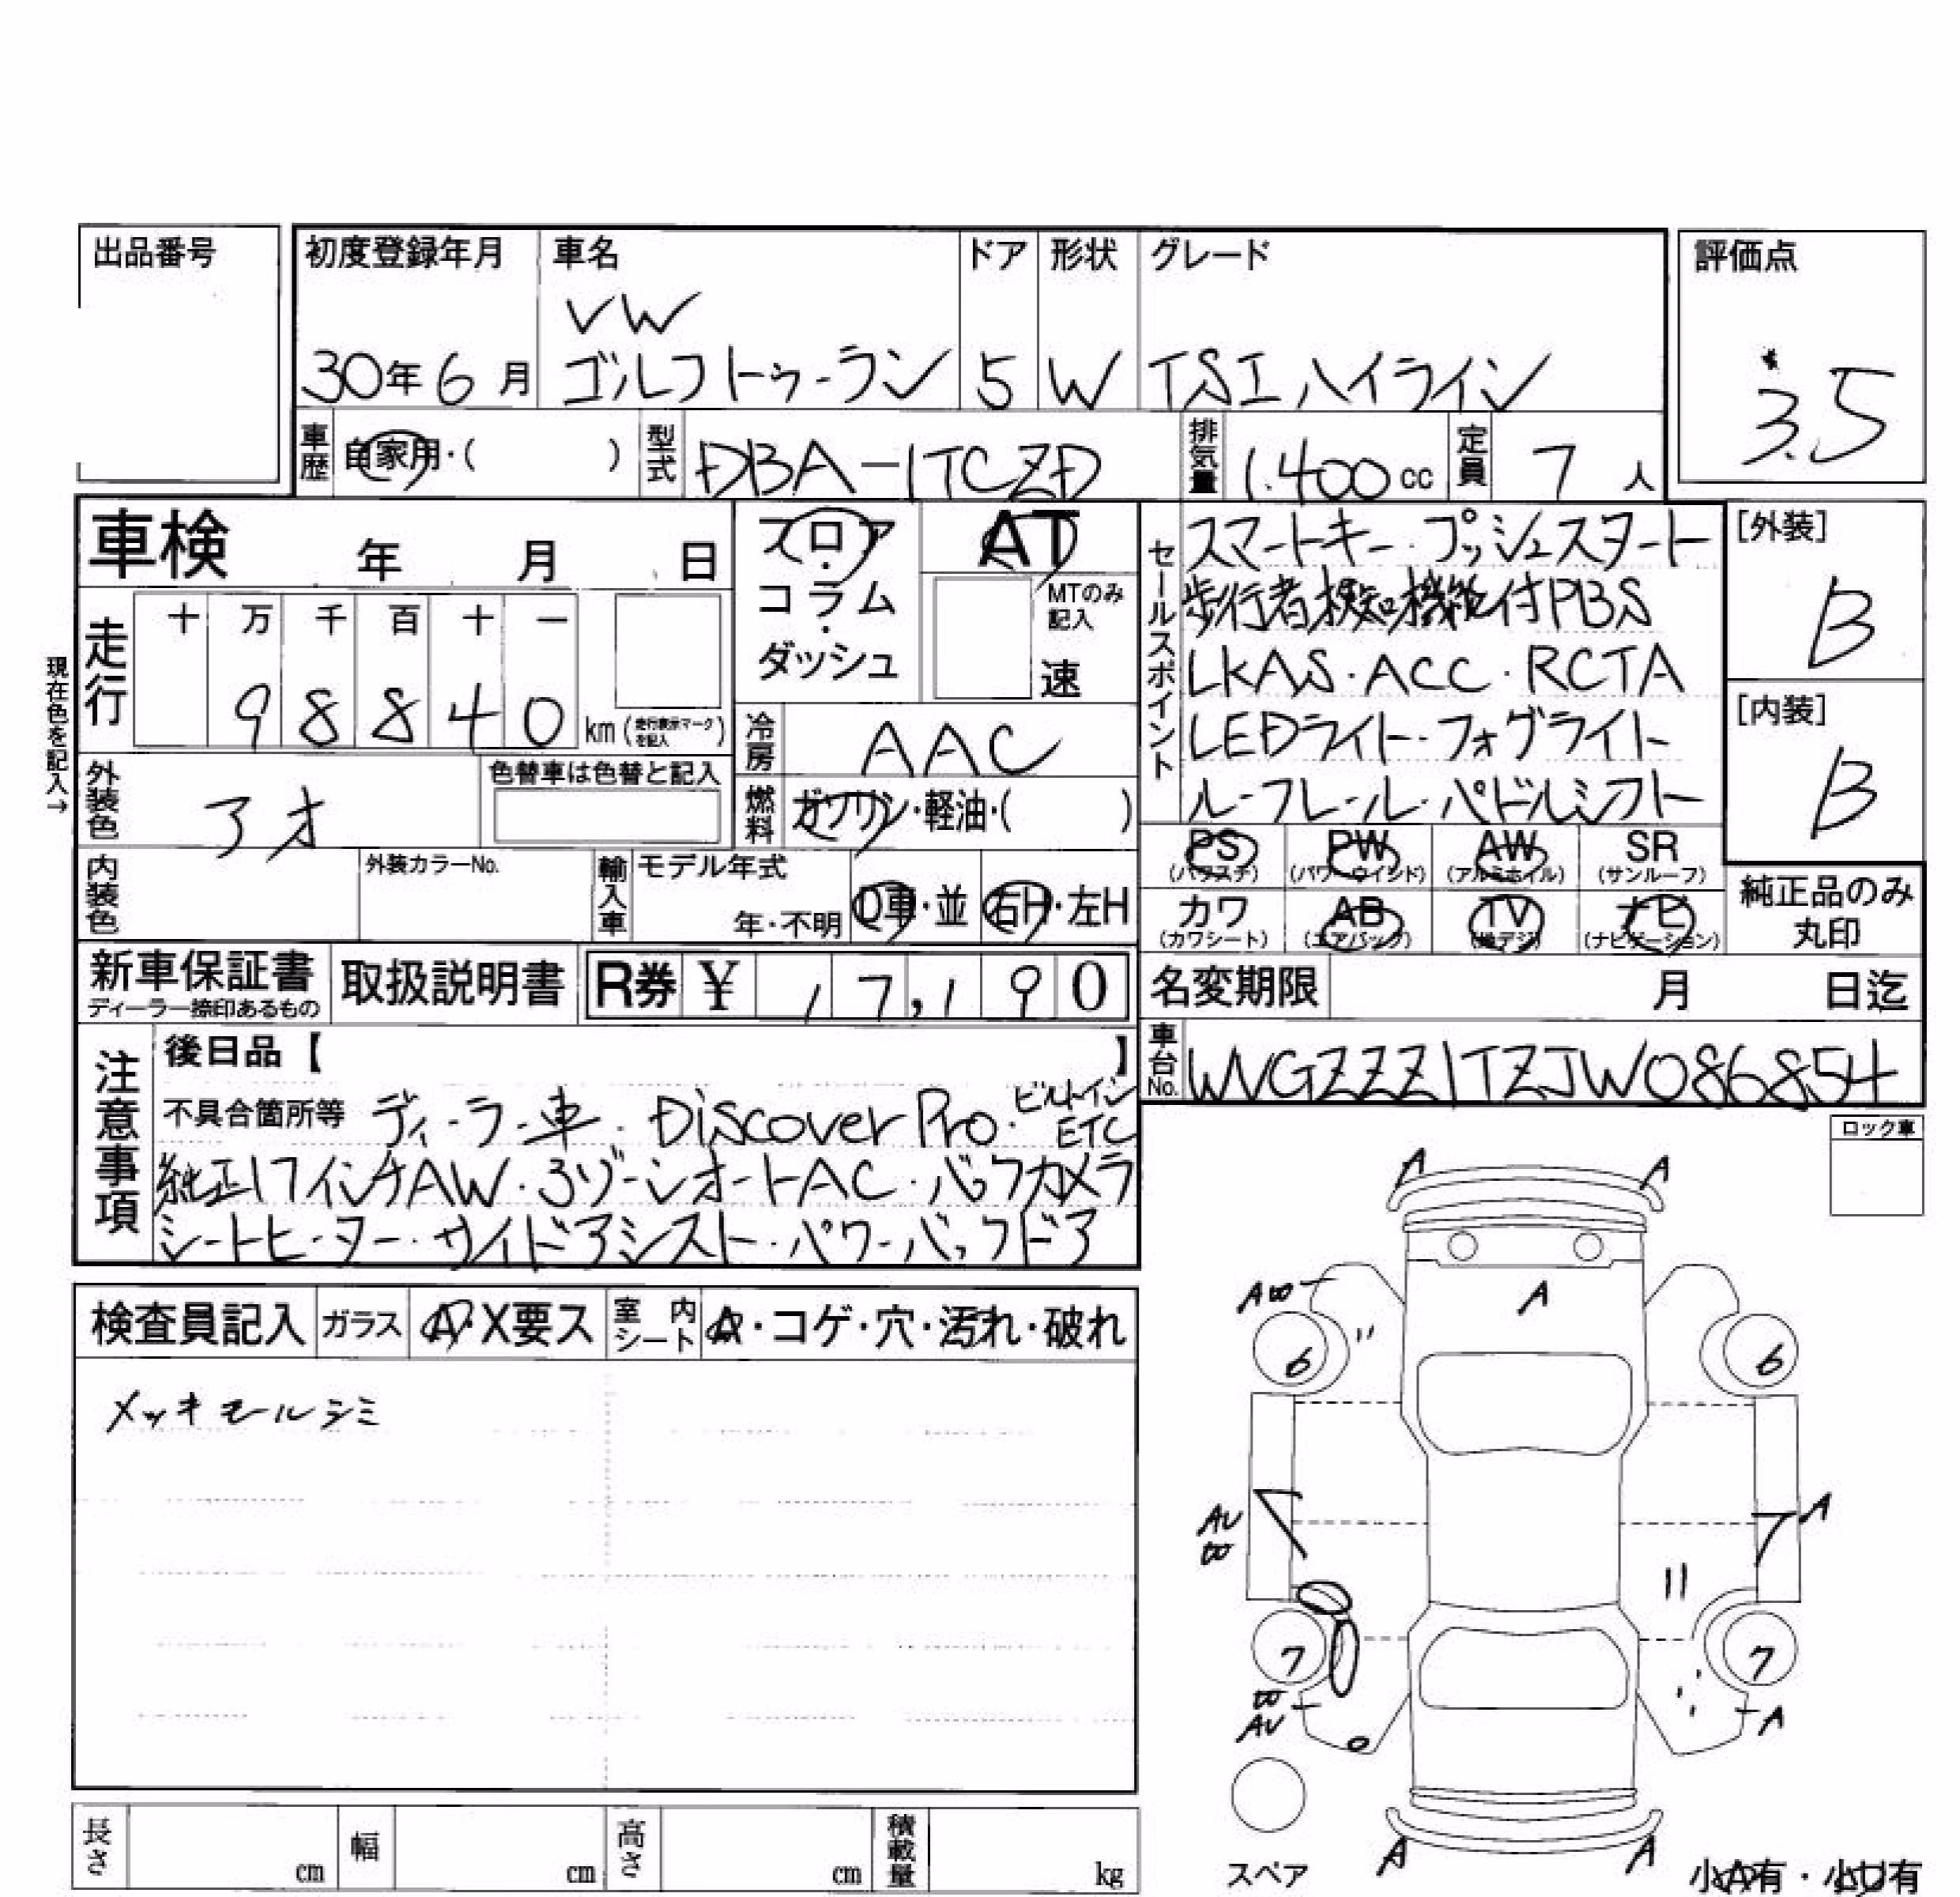 出品番号
初度登録年月 車名 ドア 形状 グレード 評価点
VW
30年6月 ゴルフトゥーラン 5 W TSIハイライン 3.5
車歴 自家用・( ) 型式 DBA-1TCZD 排気量 1.400cc 定員 7人
車検 年 月 日
フロア・コラム・ダッシュ
AT
MTのみ記入
速
現在色を記入→
走行 十 万 千 百 十 一
98840 km (走行表示マークを記入)
冷房 AAC
外装色 アオ 色替車は色替と記入
燃料 ガソリン・軽油・( )
内装色 外装カラーNo. 輸入車 モデル年式 年・不明 D車・並 右H・左H
セールスポイント
スマートキー・プッシュスタート
歩行者検知機能付PBS
LKAS・ACC・RCTA
LEDライト・フォグライト
ルーフレール・パドルシフト
[外装] B
[内装] B
PS (パワステ) PW (パワーウインド) AW (アルミホイル) SR (サンルーフ)
カワ (カワシート) AB (エアバッグ) TV (地デジ) ナビ (ナビゲーション)
純正品のみ丸印
新車保証書 ディーラー捺印あるもの 取扱説明書 R券 ¥ 17,190
名変期限 月 日迄
車台No. WVGZZZ1TZJW086854
注意事項
後日品【 】
不具合箇所等 ディーラー車・Discover Pro・ビルトインETC
純正17インチAW・3ゾーンオートAC・バックカメラ
シートヒーター・サイドアシスト・パワーバックドア
ロック車
検査員記入 ガラス A・X要ス 室内シート A・コゲ・穴・汚れ・破れ
メッキモールシミ
A A
A
6 6
AU A
7 7
AU A
A A
スペア
小A有・小U有
長さ cm 幅 cm 高さ cm 積載量 kg